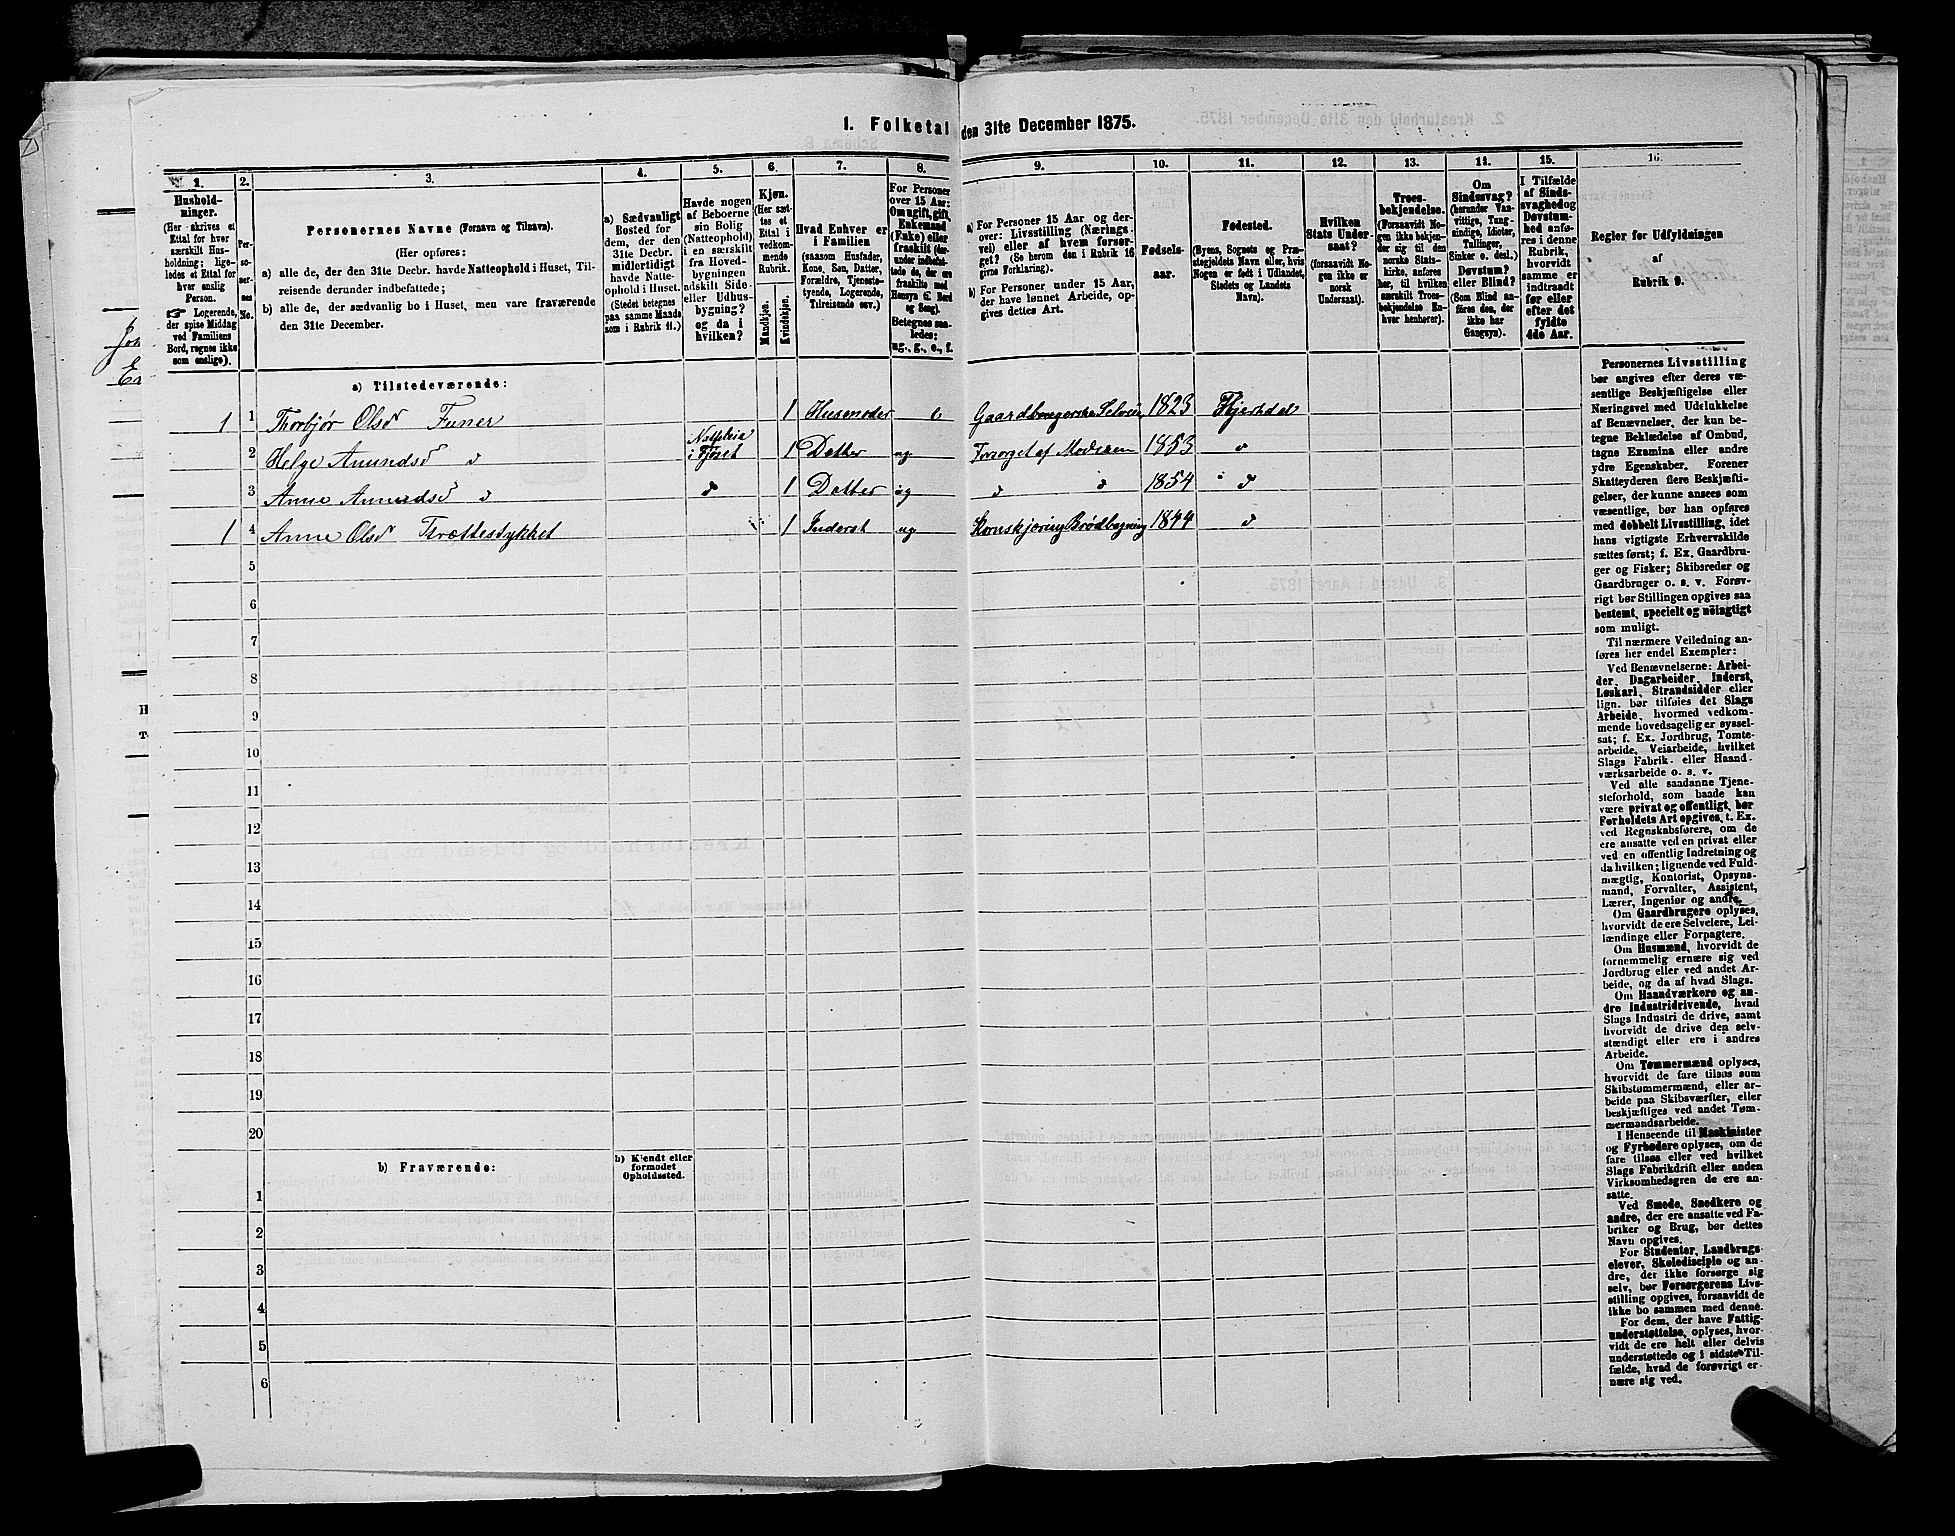 1. Folketal den 31te December 1875.
1.
Hushold-
ninger.
(Her skrives et
Ettal for hver
særskilt Hus-
holdning; lige-
ledes et Ettal for
hver enslig
Person.
Logerende,
der spise Middag
ved Familiens
Bord, regnes ikke
som enslige).
2.
Per-
so-
ner-
nes
No.
3.
Personernes Navne (Fornavn og Tilnavn).
(Her opføres:
a) alle de, der den 31te Decbr. havde Natteophold i Huset, Til-
reisende derunder indbefattede;
b) alle de, der sædvanlig bo i Huset, men vare fraværende
den 31te December.
4.
a) Sædvanligt
Bosted for
dem, der den
31te Decbr.
midlertidigt
havde Natte-
ophold i Huset.
(Stedet betegnes
paa samme Maade
som i Rubrik 11.)
5.
Havde nogen
af Beboerne
sin Bolig
(Natteophold)
i en særskilt
fra Hoved-
bygningen
adskilt Side-
eller Udhus-
bygning?
og da i
hvilken?
6.
Kjøn.
(Her sæt-
tes et
Ettal i
vedkom-
mende
Rubrik.
Mandkjøn.
Kvindekjøn.
7.
Hvad Enhver er
i Familien
(saasom Husfader,
Kone, Søn, Datter,
Forældre, Tjeneste-
tyende, Logerende,
Tilreisende osv.)
8.
For Personer
over 15 Aar:
Om ugift, gift,
Enkemand
(Enke) eller
fraskilt (der-
under indbefat-
tede de, der ere
fraskilte med
Hensyn til Bord
og Seng).
Betegnes saa-
ledes:
ug., g., e., f.
9.
a) For Personer 15 Aar og der-
over: Livsstilling (Nærings-
vei) eller af hvem forsør-
get? (Se herom den i Rubrik 16
givne Forklaring).
b) For Personer under 15 Aar,
der have lønnet Arbeide, op-
gives dettes Art.
10.
Fødsels-
aar.
11.
Fødested.
(Byens, Sognets og Præ-
stegjeldets Navn eller, hvis
Nogen er født i Udlandet,
Stedets og Landets
Navn).
12.
Hvilken
Stats Under-
saat?
(forsaavidt No-
gen ikke er
norsk
Undersaat).
13.
Troes-
bekjendelse.
(Forsaavidt No-
gen ikke bekjen-
der sig til den
norske Stats-
kirke, anføres
her, til hvilken
særskilt Troes-
bekjendelse En-
hver henhører).
14.
Om
Sindssvag?
(herunder Van-
vittige, Tung-
sindige, Idioter,
Tullinger,
Sinker o. desl.)
Døvstum?
eller Blind?
(Som Blind an-
føres den, der
ikke har
Gangsyn).
15.
I Tilfælde
af Sinds-
svaghed og
Døvstum-
hed anfø-
res i denne
Rubrik,
hvorvidt
samme er
indtraadt
før eller
efter det
fyldte
4de Aar.
16.
Regler for Udfyldningen
af
Rubrik 9.
a) Tilstedeværende:
1 1 Thorbjør Olsd Funer 1 Husmoder e Gaardbrugerske Selveier 1823 Hjertdal
2 Helge Amundsd d Natteleie i Fjøset 1 Datter ug Forsørget af Moderen 1853 d
3 Anne Amundsd d d 1 Datter ug d d 1854 d
1 4 Anne Olsd Trættestykket 1 Inderst ug Kornskjæring Brødbagning 1844 d
5
6
7
8
9
10
11
12
13
14
15
16
17
18
19
20
b) Fraværende:
b) Kjendt eller
formodet
Opholdssted.
1
2
3
4
5
6
Personernes Livsstilling
bør angives efter deres væ-
sentlige Beskjæftigelse eller
Næringsvei med Udelukkelse
af Benævnelser, der kun be-
tegne Beklædelse af Ombud,
tagne Examina eller andre
ydre Egenskaber. Forener
Skatteyderen flere Beskjæfti-
gelser, der kunne ansees som
væsentlige, bør han opføres
med dobbelt Livsstilling, idet
hans vigtigste Erhvervskilde
sættes først; f. Ex. Gaardbru-
ger og Fisker; Skibsreder og
Gaardbruger o. s. v. Forøv-
rigt bør Stillingen opgives saa
bestemt, specielt og nøiagtigt
som muligt.
Til nærmere Veiledning an-
føres her endel Exempler:
Ved Benævnelserne: Arbei-
der, Dagarbeider, Inderst,
Løskarl, Strandsidder eller
lign. bør tilføies det Slags
Arbeide, hvormed vedkom-
mende hovedsagelig er syssel-
sat; f. Ex. Jordbrug, Tomte-
arbeide, Veiarbeide, hvilket
Slags Fabrik- eller Haand-
værksarbeide o. s. v.
Ved alle saadanne Tjene-
steforhold, som baade kan
være privat og offentligt, bør
Forholdets Art opgives, t. Ex.
ved Regnskabsførere, om de
ere ansatte ved en privat eller
ved en offentlig Indretning og
da hvilken; lignende ved Fuld-
mægtig, Kontorist, Opsyns-
mand, Forvalter, Assistent,
Lærer, Ingeniør og andre.
Om Gaardbrugere oplyses,
hvorvidt de ere Selveiere, Lei-
lændinge eller Forpagtere.
Om Husmænd, hvorvidt de
fornemmelig ernære sig ved
Jordbrug eller ved andet Ar-
beide, og da af hvad Slags.
Om Haandværkere og an-
dre Industridrivende, hvad
Slags Industri de drive, samt
hvorvidt de drive den selv-
stændigt eller ere i andres
Arbeide.
Om Tømmermænd oplyses,
hvorvidt de fare tilsøs som
Skibstømmermænd, eller ar-
beide paa Skibsværfter, eller
beskjæftiges ved andet Tøm-
mermandsarbeide.
I Henseende til Maskinister
og Fyrbødere oplyses, om de
fare tilsøs eller ved hvilket
Slags Fabrikdrift eller anden
Virksomhedsgren de ere an-
satte.
Ved Smede, Snedkere og
andre, der ere ansatte ved Fa-
briker og Brug, bør dettes
Navn opgives.
For Studenter, Landbrugs-
elever, Skoledisciple og an-
dre, der ikke forsørge sig
selv, bør Forsørgerens Livs-
stilling opgives, forsaavidt de
ikke bo sammen med denne.
For dem, der have Fattig-
understøttelse, oplyses, hvor-
vidt de ere helt eller delvis
understøttede og i sidste Til-
fælde, hvad de forøvrigt er-
nære sig ved.